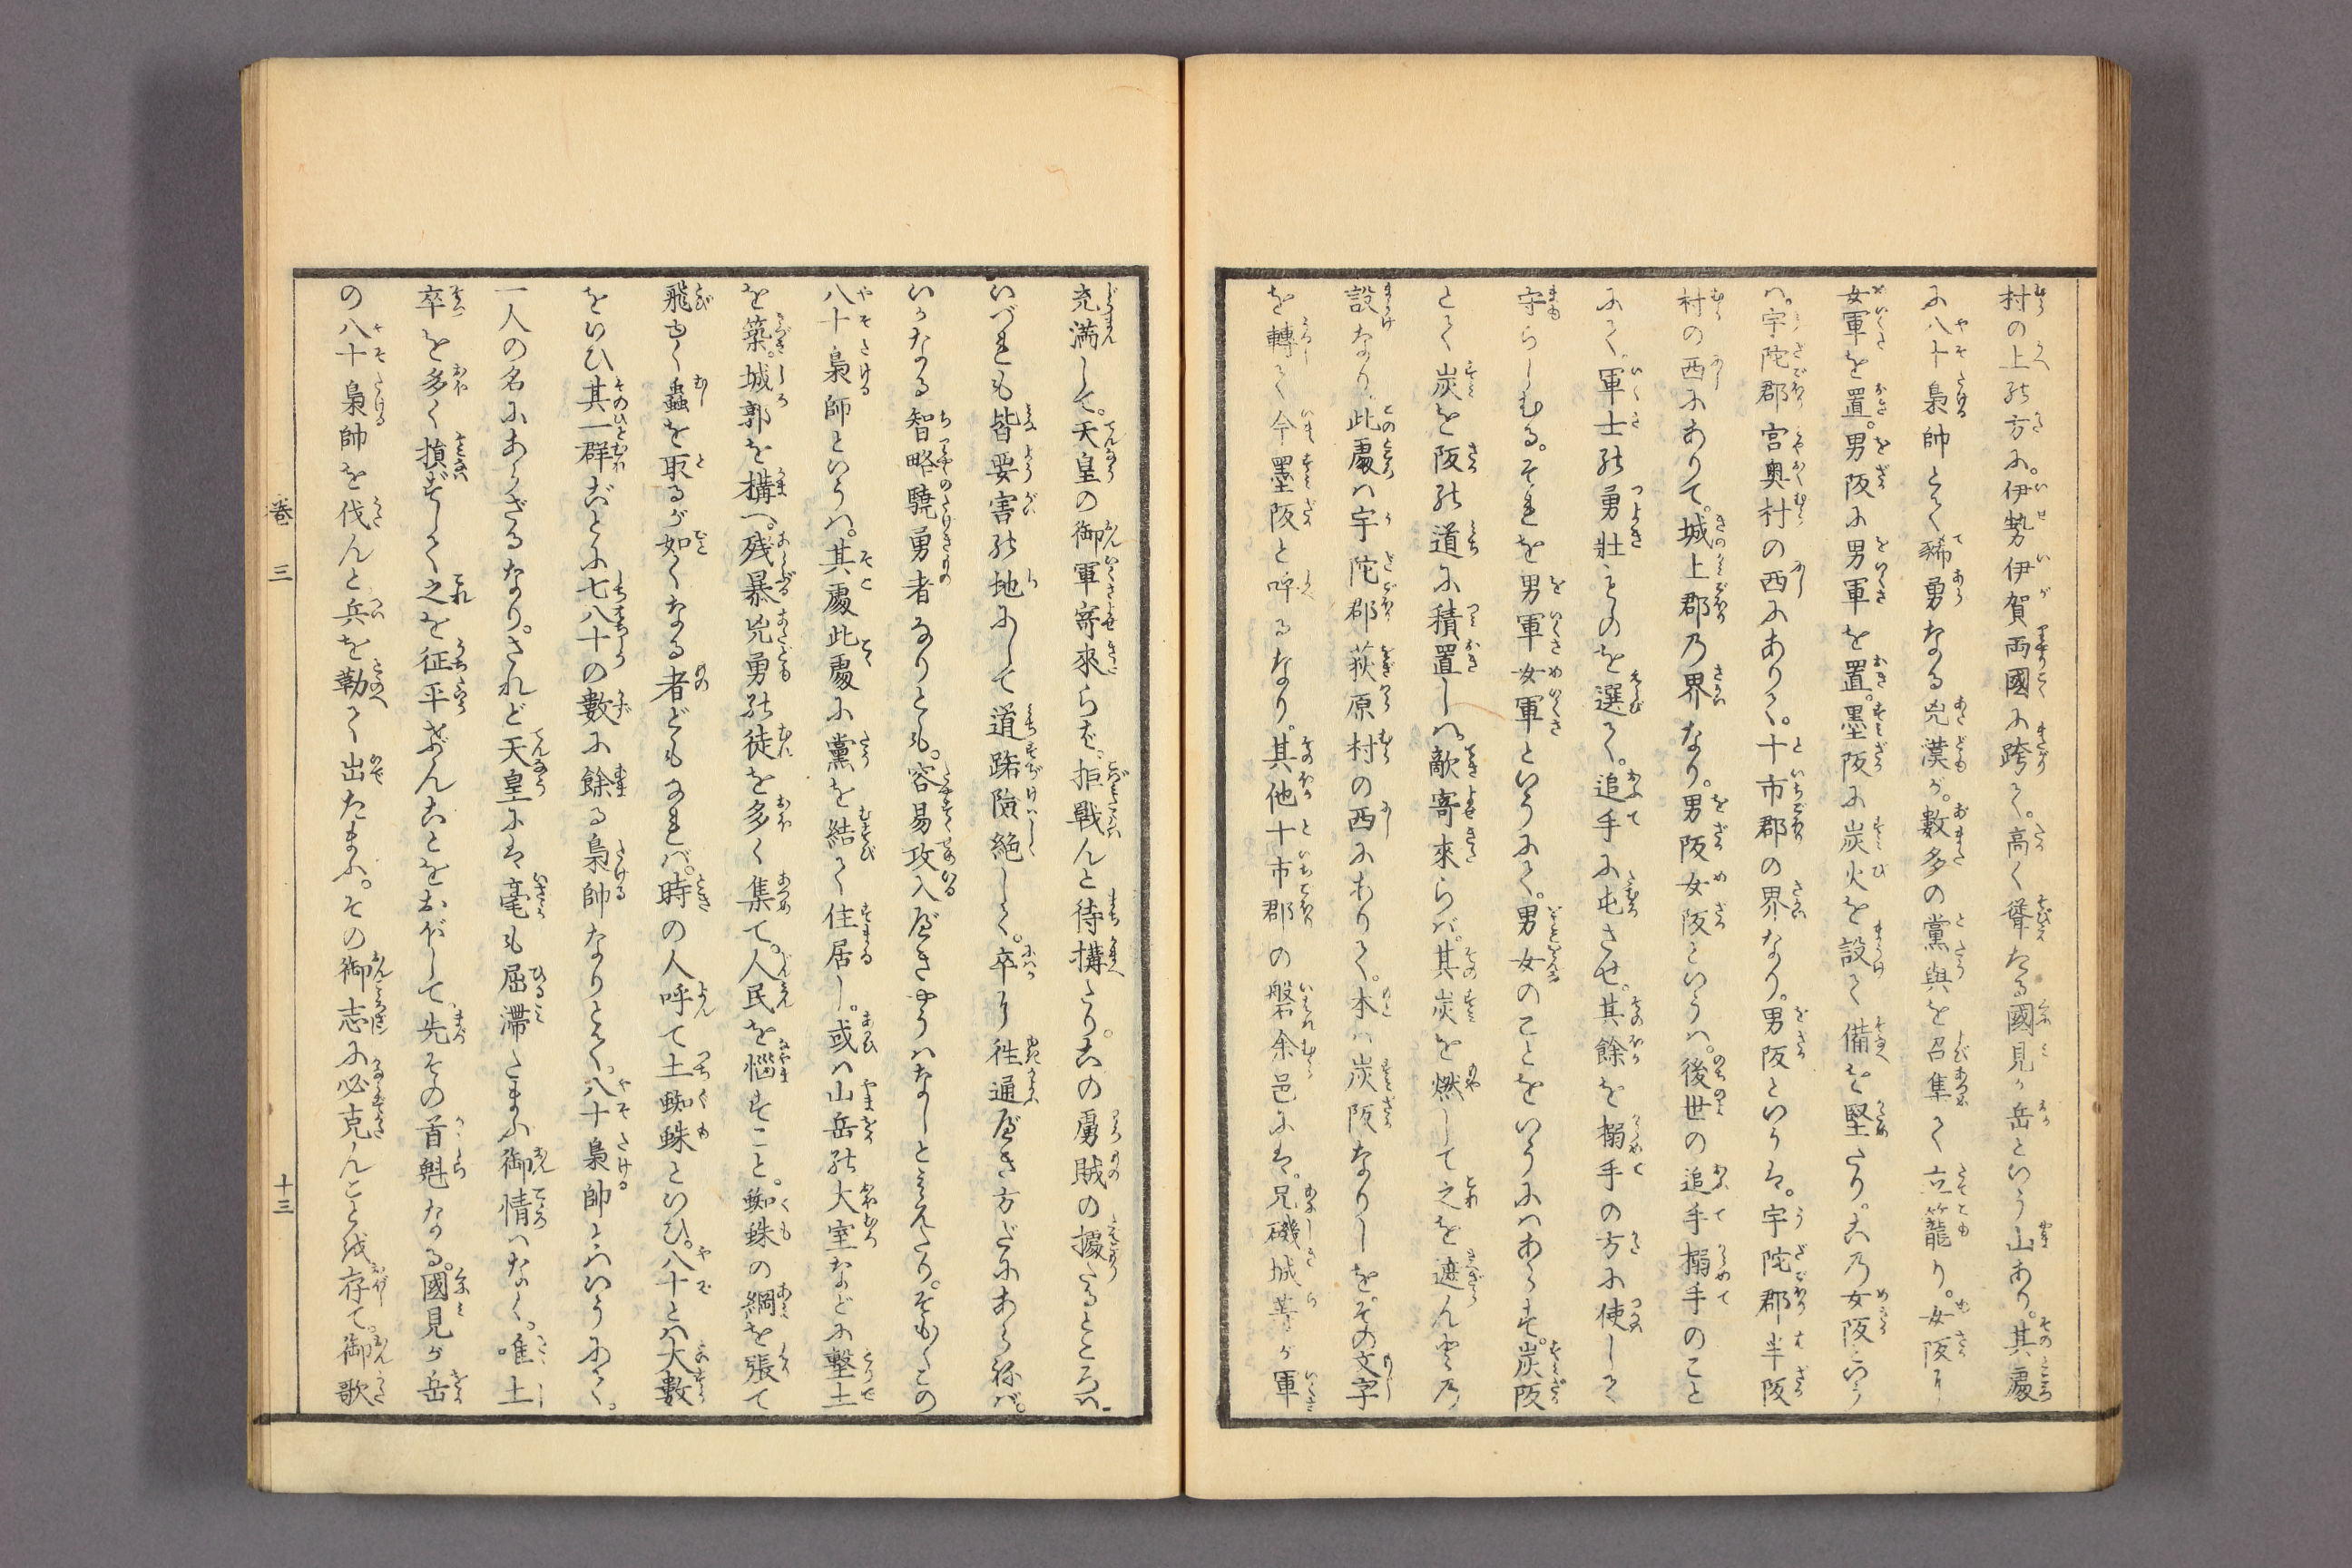 村の上の方に。伊勢伊賀両國に跨て。高く聳たる國見が岳といふ山あり。其處
に八十梟帥とて猛勇なる兇漢が。數多の黨與を召集て立籠り。女阪に
女軍を置。男阪に男軍を置。墨阪に炭火を設て備を堅たり。此乃女阪といふ
は。宇陀郡宮奥村の西にありて。十市郡の界なり。男阪といふは。宇陀郡半阪
村の西にありて。城上郡乃界なり。男阪女阪といふは。後世の追手搦手のこと
にて。軍士の勇壯ものを選て。追手に屯させ。其餘を搦手の方に使して
守らしむる。それを男軍女軍といふにて。男女のことをいふにはあらず。炭阪
とて炭を阪の道に積置しは。敵寄來らば。其炭を燃して之を遮ん爲乃
設なり。此處は宇陀郡萩原村の西にありて。本は炭阪なりしを。その文字
を轉て今墨阪と呼るなり。其他十市郡の磐余邑には。兄磯城等が軍
充満して。天皇の御軍寄來らば。拒戰んと待構たり。此の虜賊の據たるところは
いづれも皆要害の地にして道路險絶しく。卒に徃通べき方だにあらねば。
いかなる智略驍勇者なりとも。容易攻入べきやうはなしと見えたり。そも〳〵この
八十梟師といふは。其處此處に黨を結て住居し。或は山岳の大室などに塹土
を築。城郭を構へ。残暴兇勇の徒を多く集て。人民を惱すこと。蜘蛛の網を張て
飛ゆく蟲を取るが如くなる者どもなれば。時の人呼て土蜘蛛といひ。八十とは大數
をいひ其一群ごとに七八十の數に餘る梟帥なりとて。八十梟帥とはいうにて。
一人の名にあらざるなり。されど天皇には毫も屈滯たまふ御情はなく。唯土
卒を多く損ずして之を征平げんことをおぼして。先その首魁なる。國見が岳
の八十梟帥を伐んと兵を勒て出たまふ。その御志に必克んことを存て。御歌
卷三
十三